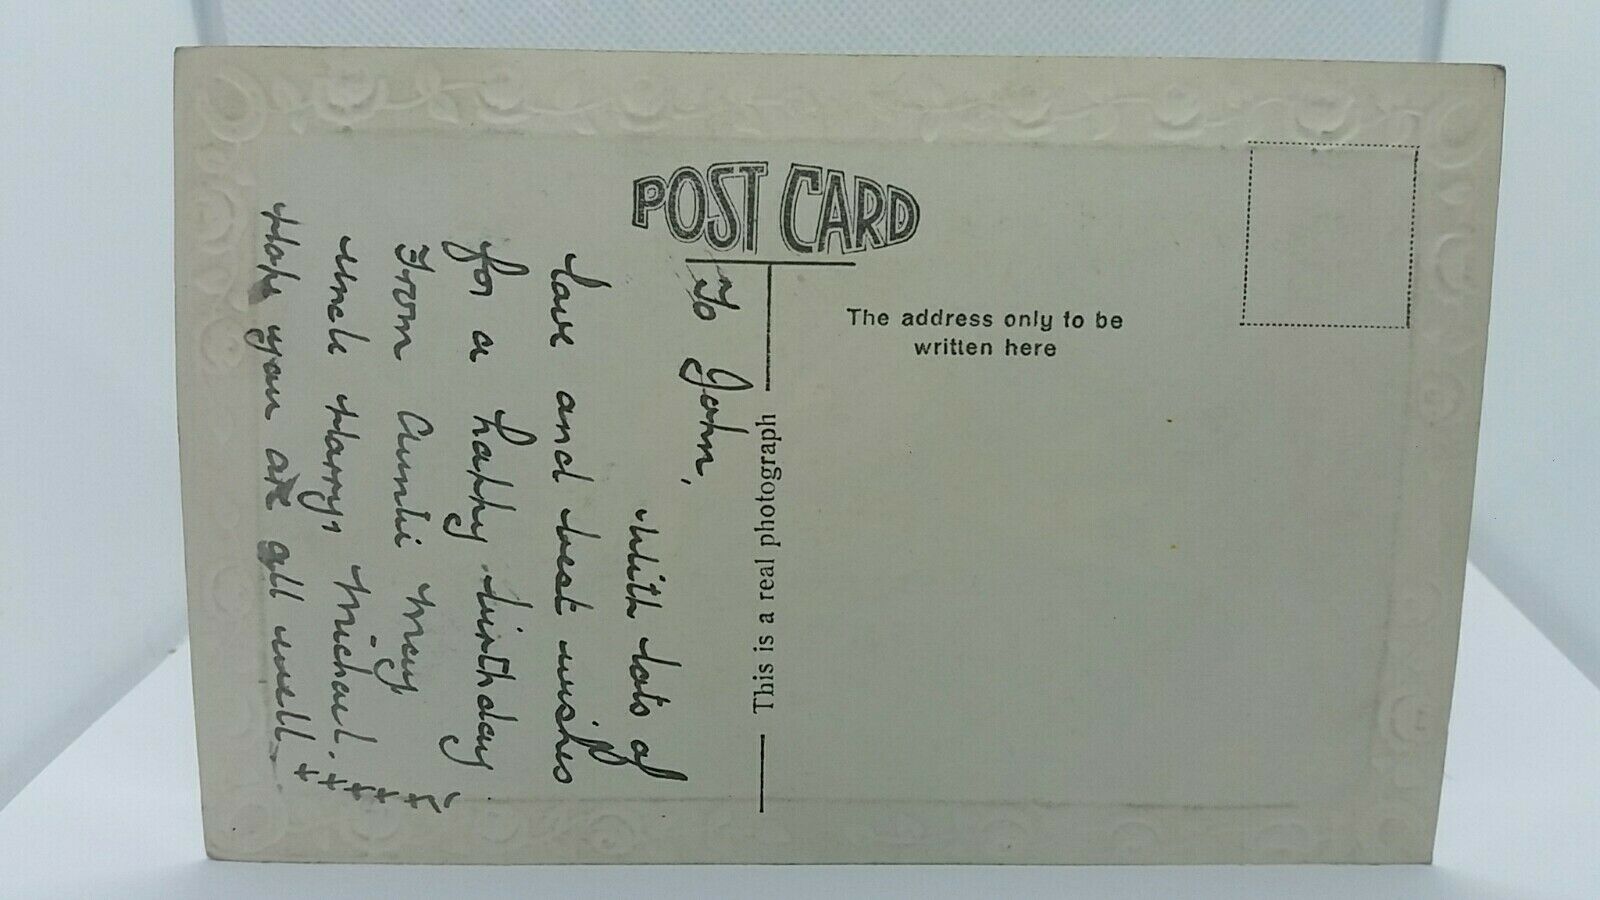 POST CARD
The address only to be
written here
This is a real photograph
To John,
With lots of
love and best wishes
for a happy birthday
From Auntie May
Uncle Harry, Michael.
Hope you are all well.
+++++